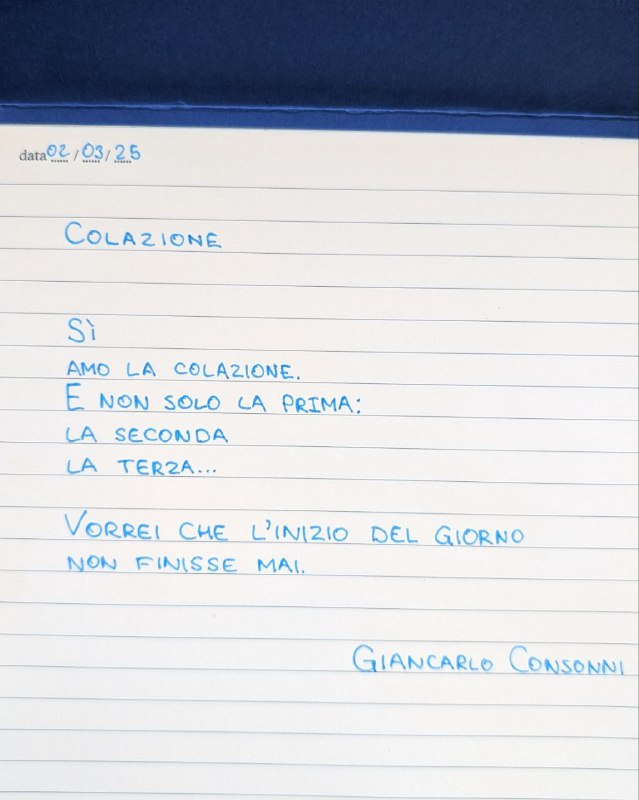 data 02/03/25
COLAZIONE
SÌ
AMO LA COLAZIONE.
E NON SOLO LA PRIMA:
LA SECONDA
LA TERZA...
VORREI CHE L'INIZIO DEL GIORNO
NON FINISSE MAI.
GIANCARLO CONSONNI